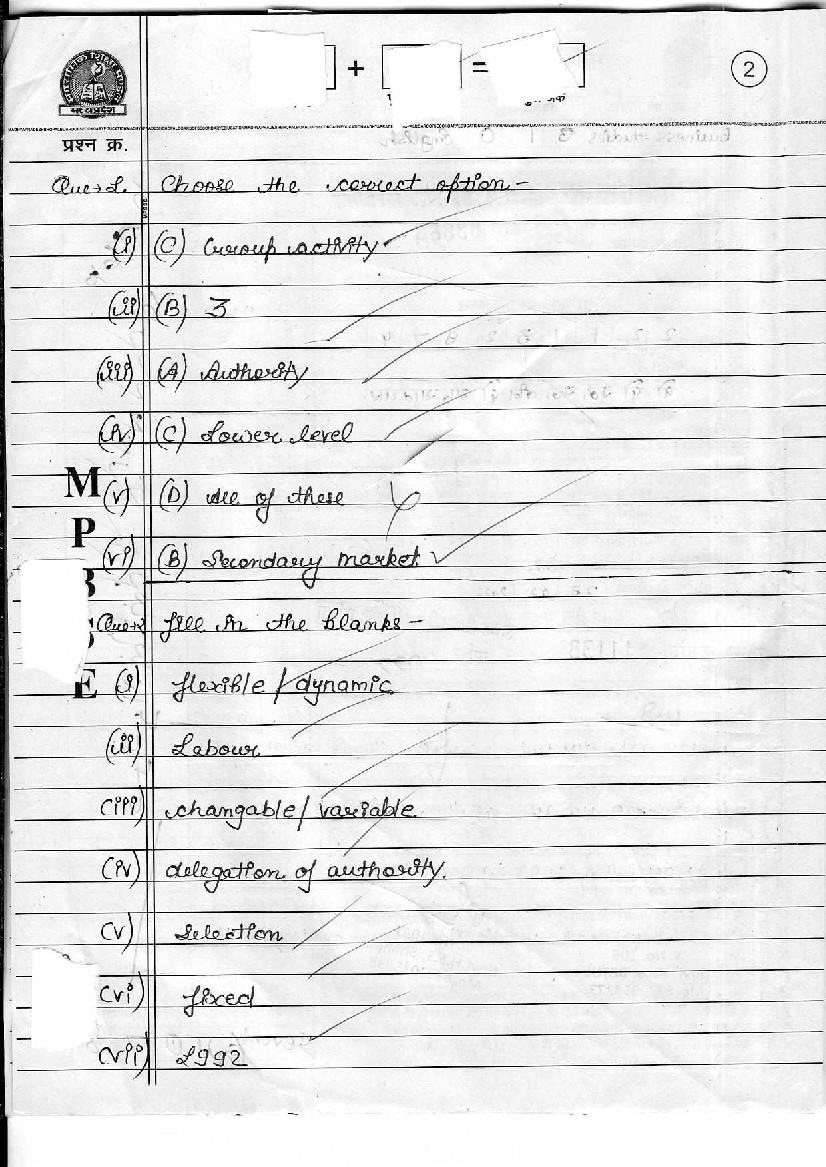 + =
2
प्रश्न क्र.
Que→1. Choose the correct option-
(i) (C) Group activity
(ii) (B) 3
(iii) (A) Authority
(iv) (C) Lower level
(v) (D) All of these
(vi) (B) Secondary market
Que→2 fill in the blanks-
(i) flexible / dynamic
(ii) Labour
(iii) changable / variable
(iv) delegation of authority.
(v) Selection
(vi) fixed
(vii) 1992
M
P
B
S
E